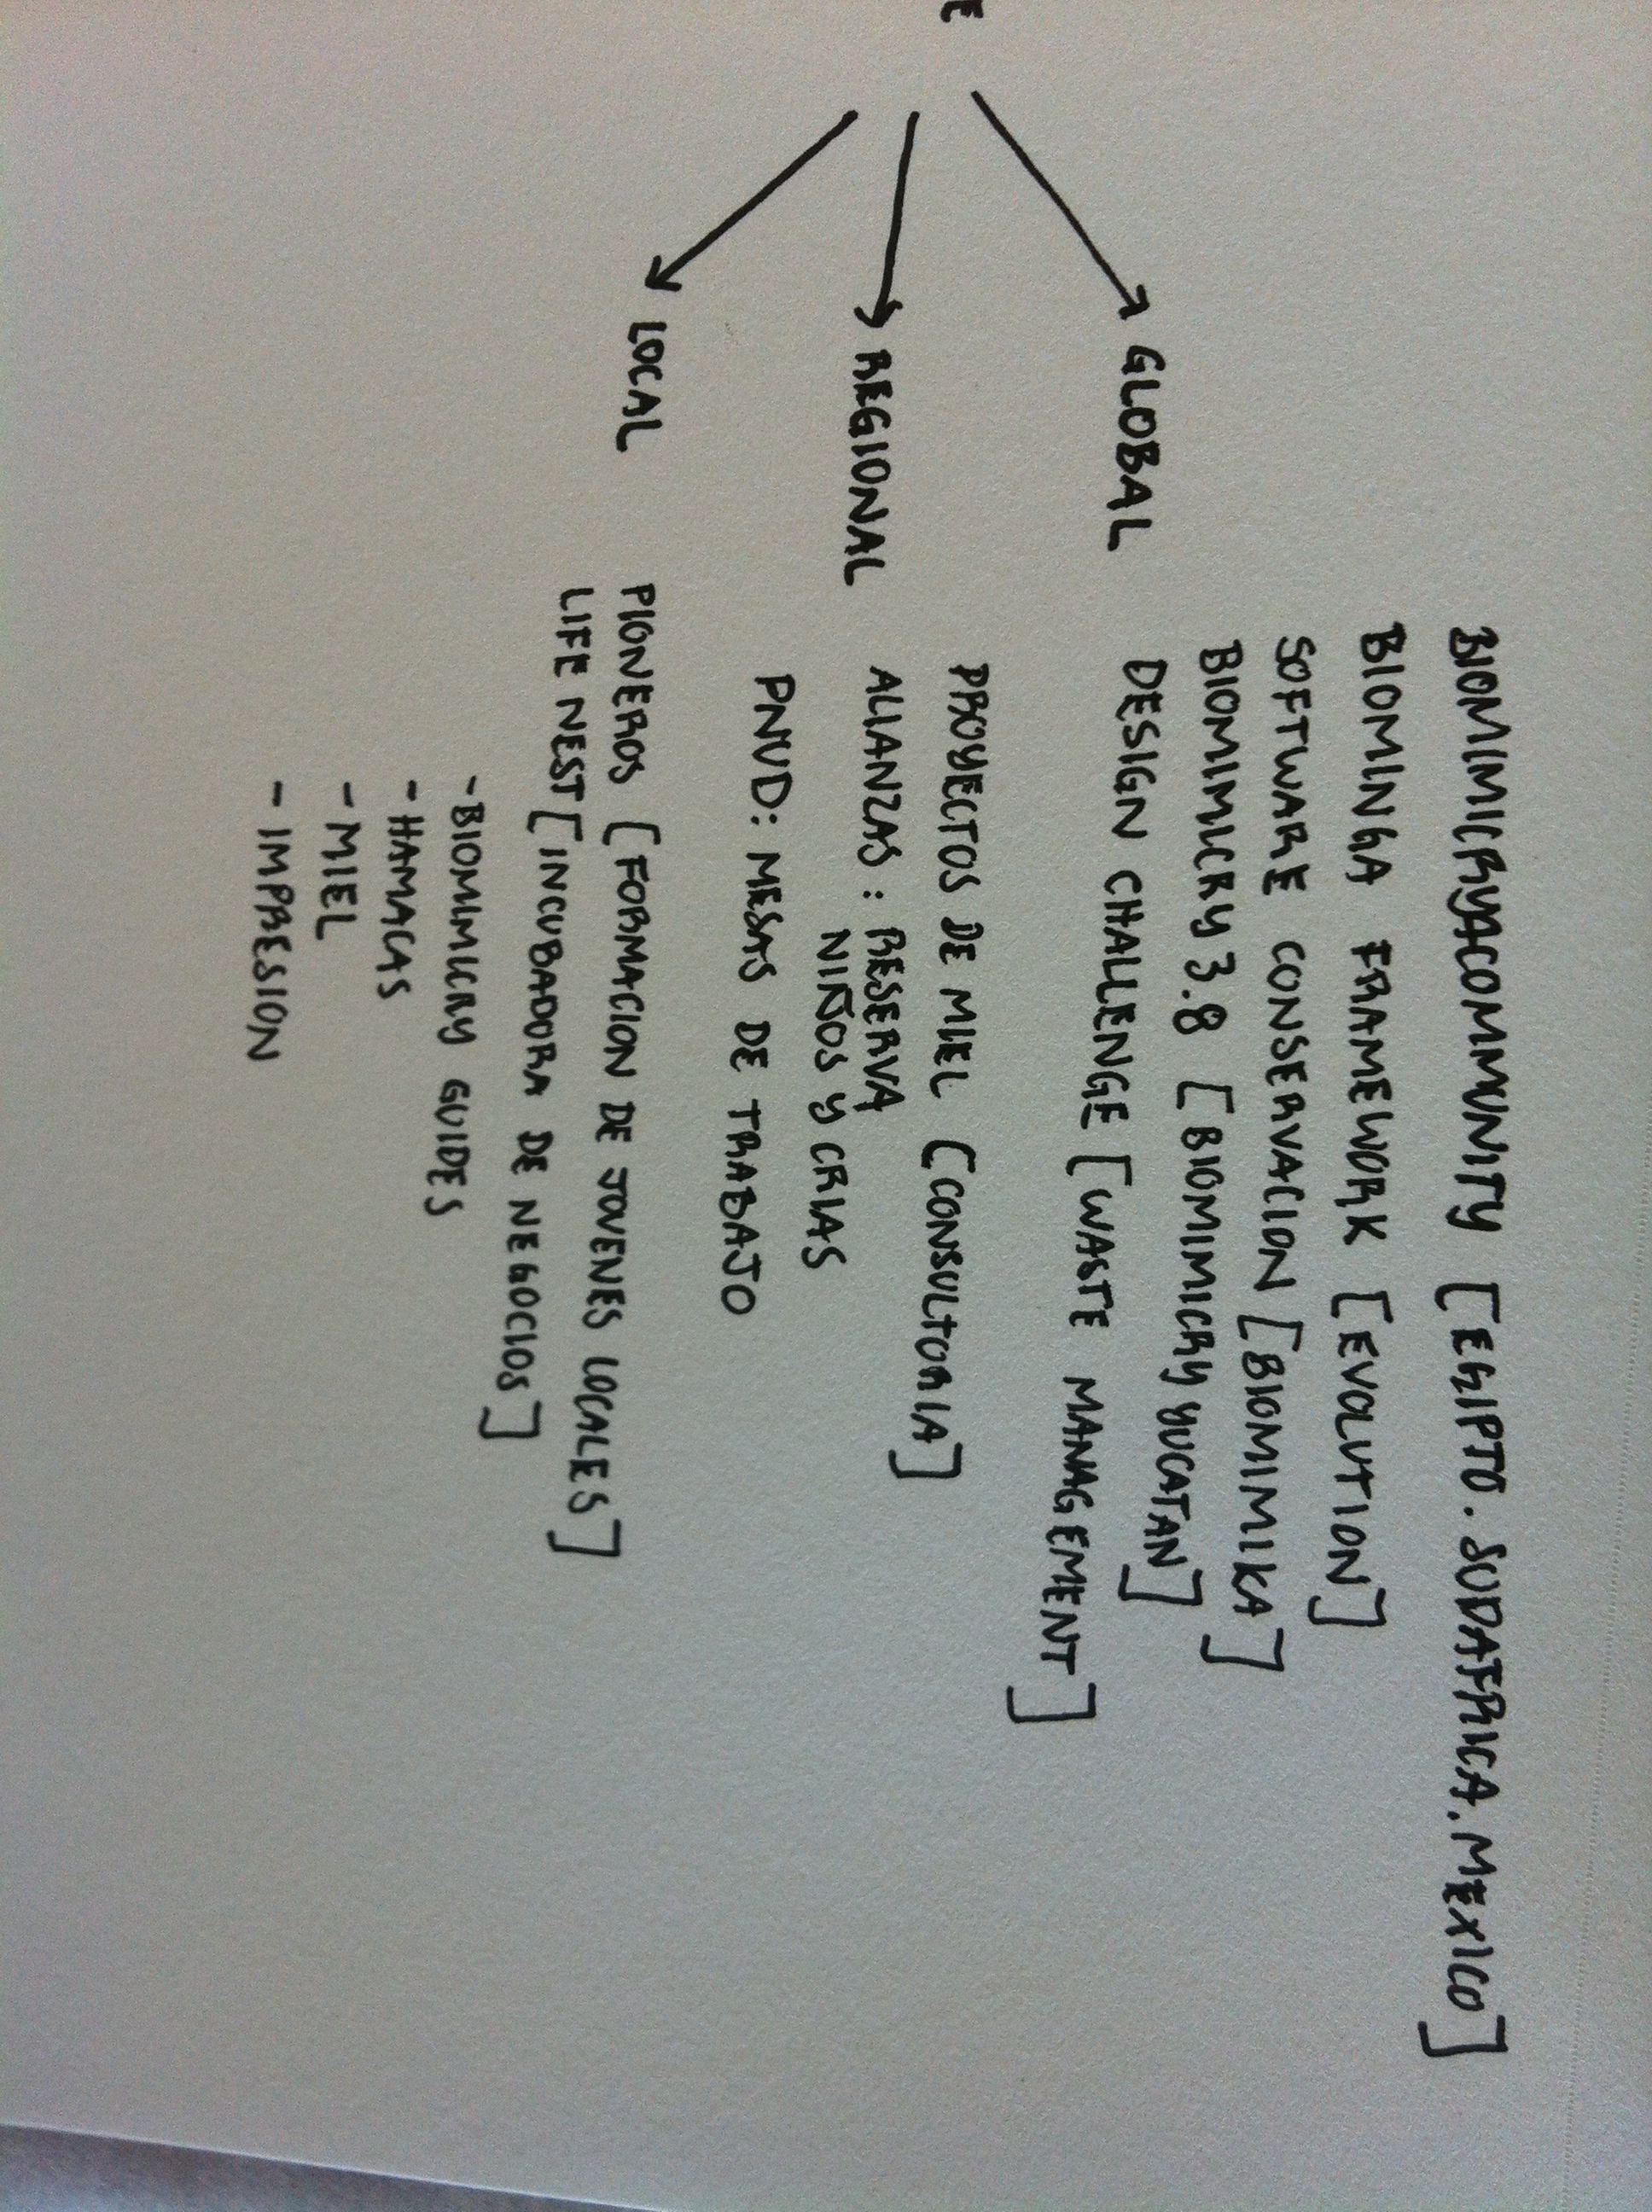 BIOMIMICRYACOMMUNITY [EGIPTO. SUDAFRICA. MEXICO]
BIOMINGA FRAMEWORK [EVOLUTION]
SOFTWARE CONSERVACION [BIOMIMIKA]
BIOMIMICRY 3.8 [BIOMIMICRY YUCATAN]
GLOBAL
DESIGN CHALLENGE [WASTE MANAGEMENT]
PROYECTOS DE MIEL (CONSULTORIA]
REGIONAL
ALIANZAS: RESERVA
NIÑOS Y CRIAS
PNUD: MESAS DE TRABAJO
LOCAL
PIONEROS [FORMACION DE JOVENES LOCALES]
LIFE NEST [INCUBADORA DE NEGOCIOS]
- BIOMIMICRY GUIDES
- HAMACAS
- MIEL
- IMPRESION